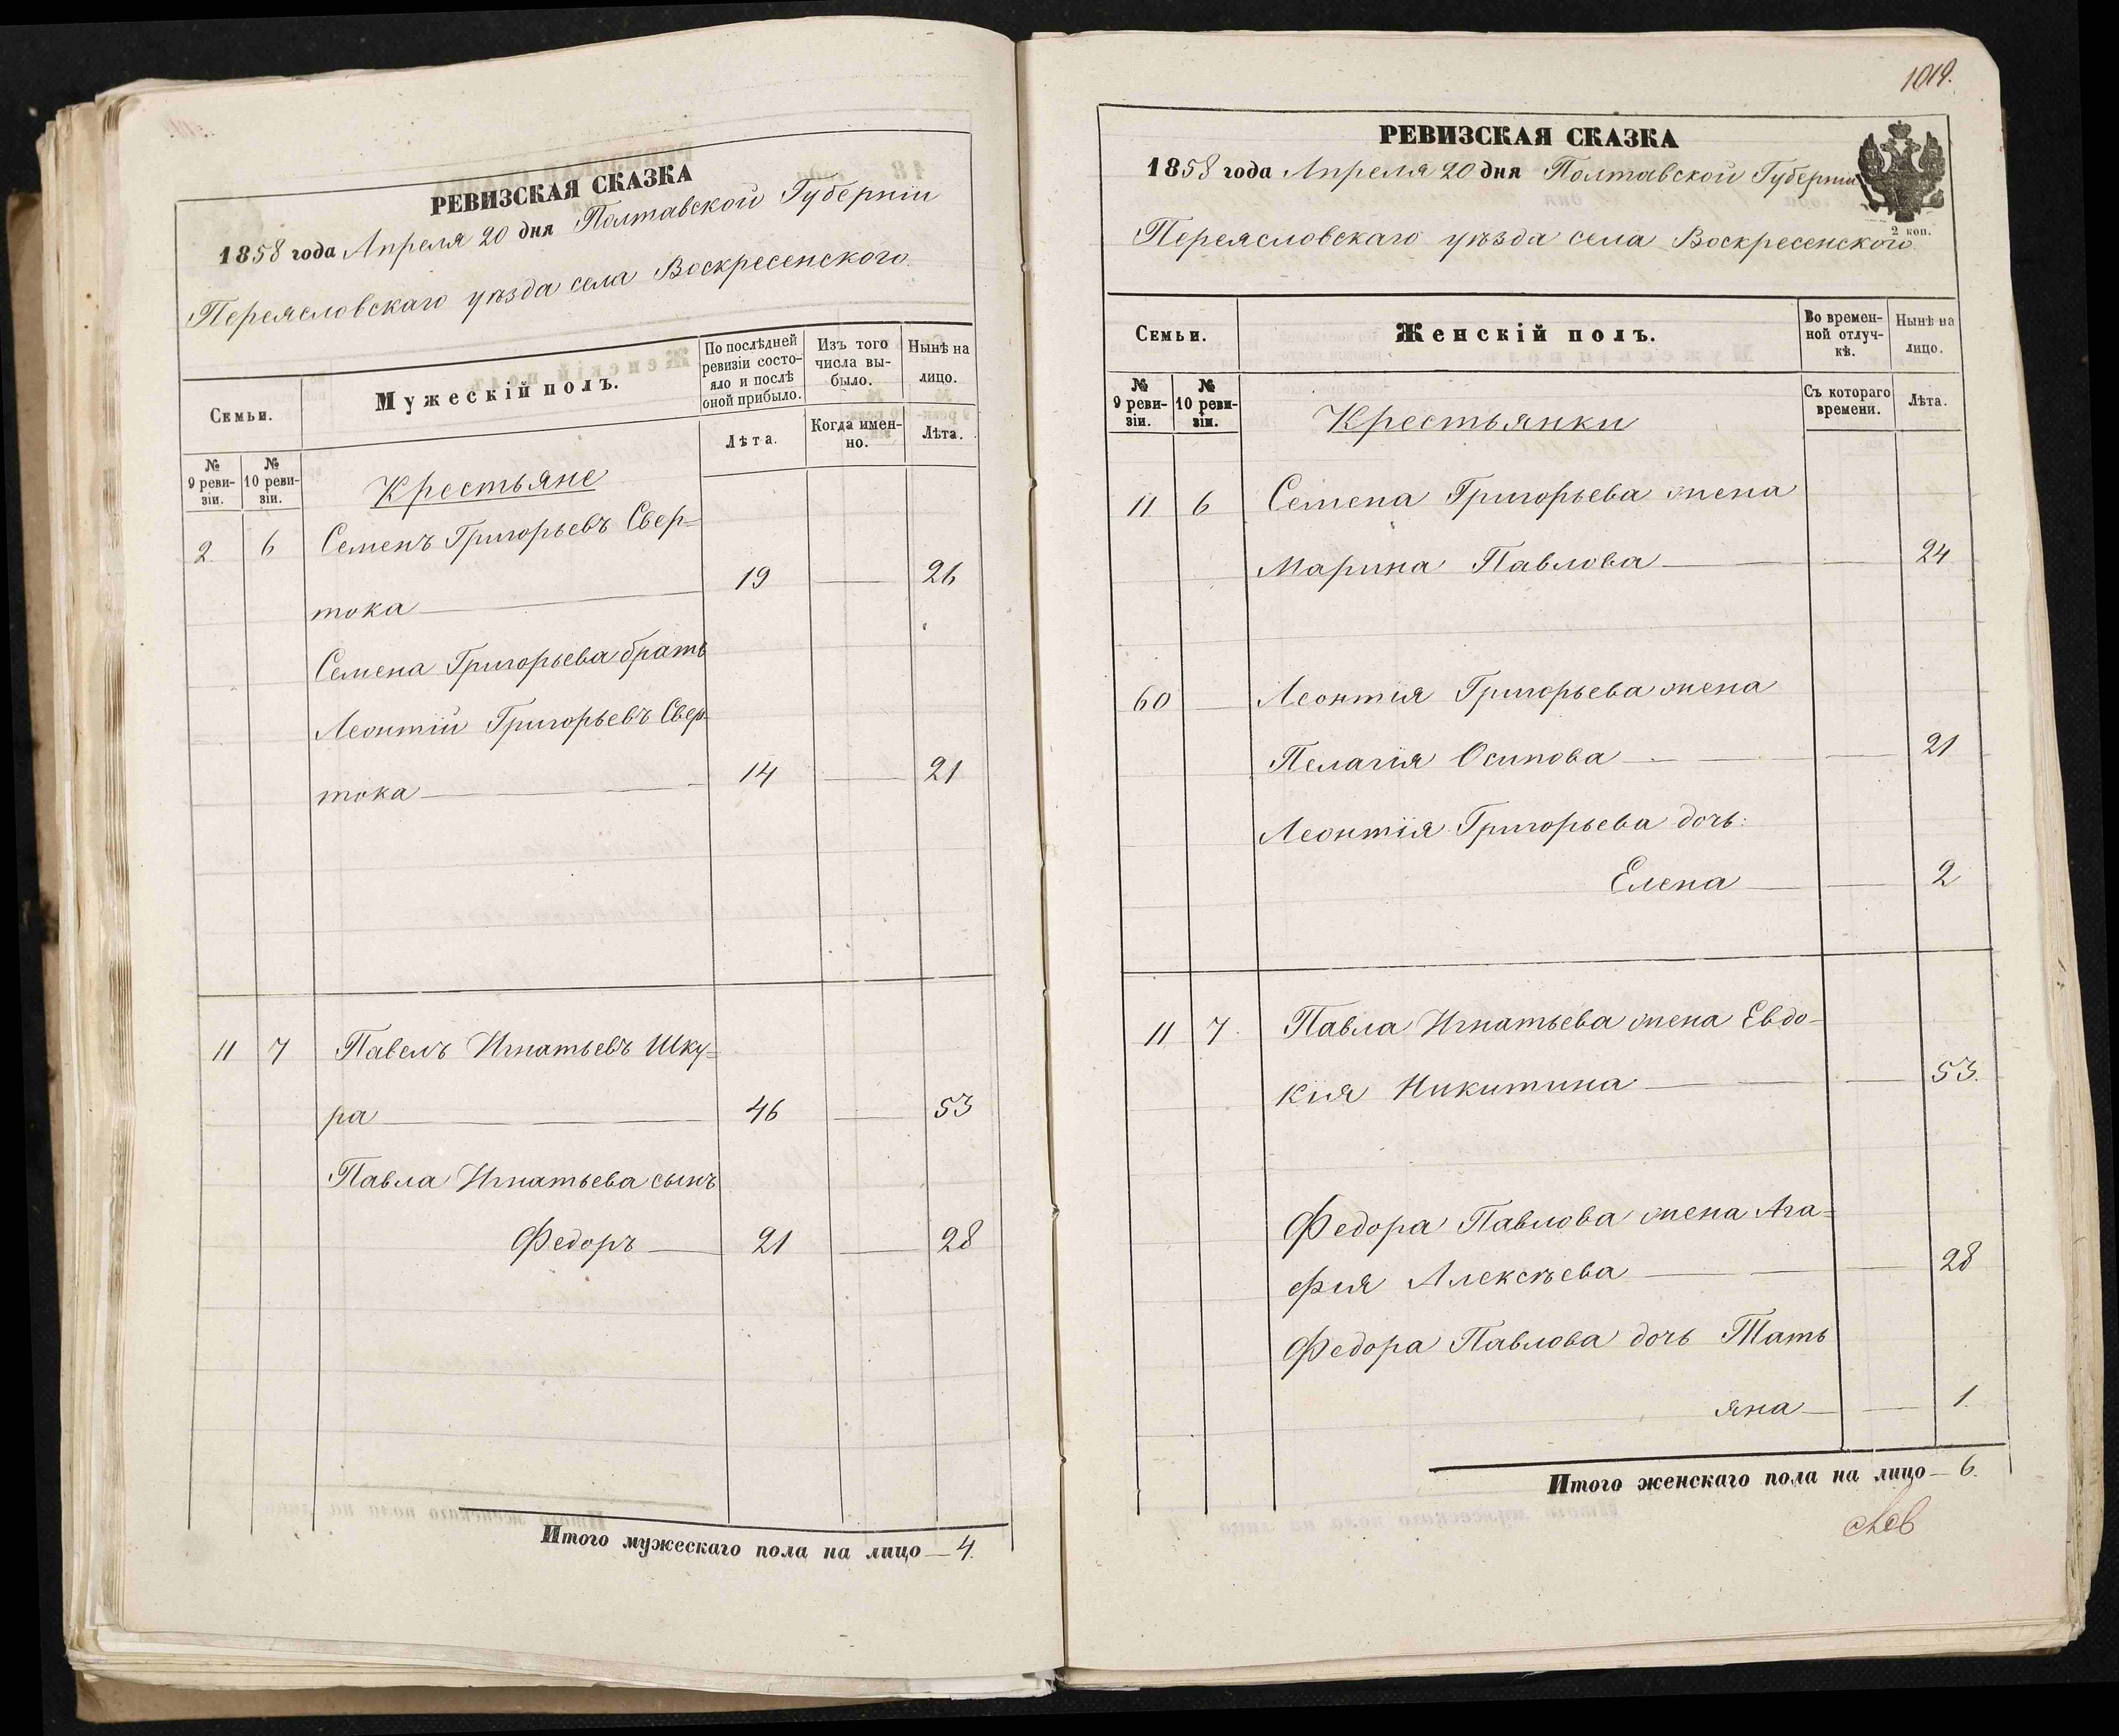 РЕВИЗСКАЯ СКАЗКА
1858 года Апреля 20 дня Полтавской Губерніи
Переясловскаго уѣзда села Воскресенского.
Семьи.
Мужескій полъ.
По послѣдней ревизіи состояло и послѣ оной прибыло.
Изъ того числа выбыло.
Нынѣ на лицо.
№ 9 ревизіи.
№ 10 ревизіи.
Крестьяне
Лѣта.
Когда именно.
Лѣта.
2. 6 Семенъ Григорьевъ Свер=
тока — 19 — 26
Семена Григорьева братъ
Леонтій Григорьевъ Свер-
тока — 14 — 21
11 7 Павелъ Игнатьевъ Шку=
ра — 46 — 53
Павла Игнатьева сынъ
Федоръ — 21 — 28
Итого мужескаго пола на лицо — 4.
1019.
РЕВИЗСКАЯ СКАЗКА
1858 года Апреля 20 дня Полтавской Губерніи
2 коп.
Переясловскаго уѣзда села Воскресенского.
Семьи.
Женскій полъ.
Во временной отлучкѣ.
Нынѣ на лицо.
№ 9 ревизіи.
№ 10 ревизіи.
Крестьянки
Съ котораго времени.
Лѣта.
11 6 Семена Григорьева жена
Марина Павлова — 24
60 — Леонтія Григорьева жена
Пелагія Осипова — 21
Леонтія Григорьева дочь:
Елена — 2
11 7. Павла Игнатьева жена Евдо-
кія Никитина — 53.
Федора Павлова жена Ага=
фія Алексѣева — 28
Федора Павлова дочь Тать
яна — 1.
Итого женскаго пола на лицо — 6.